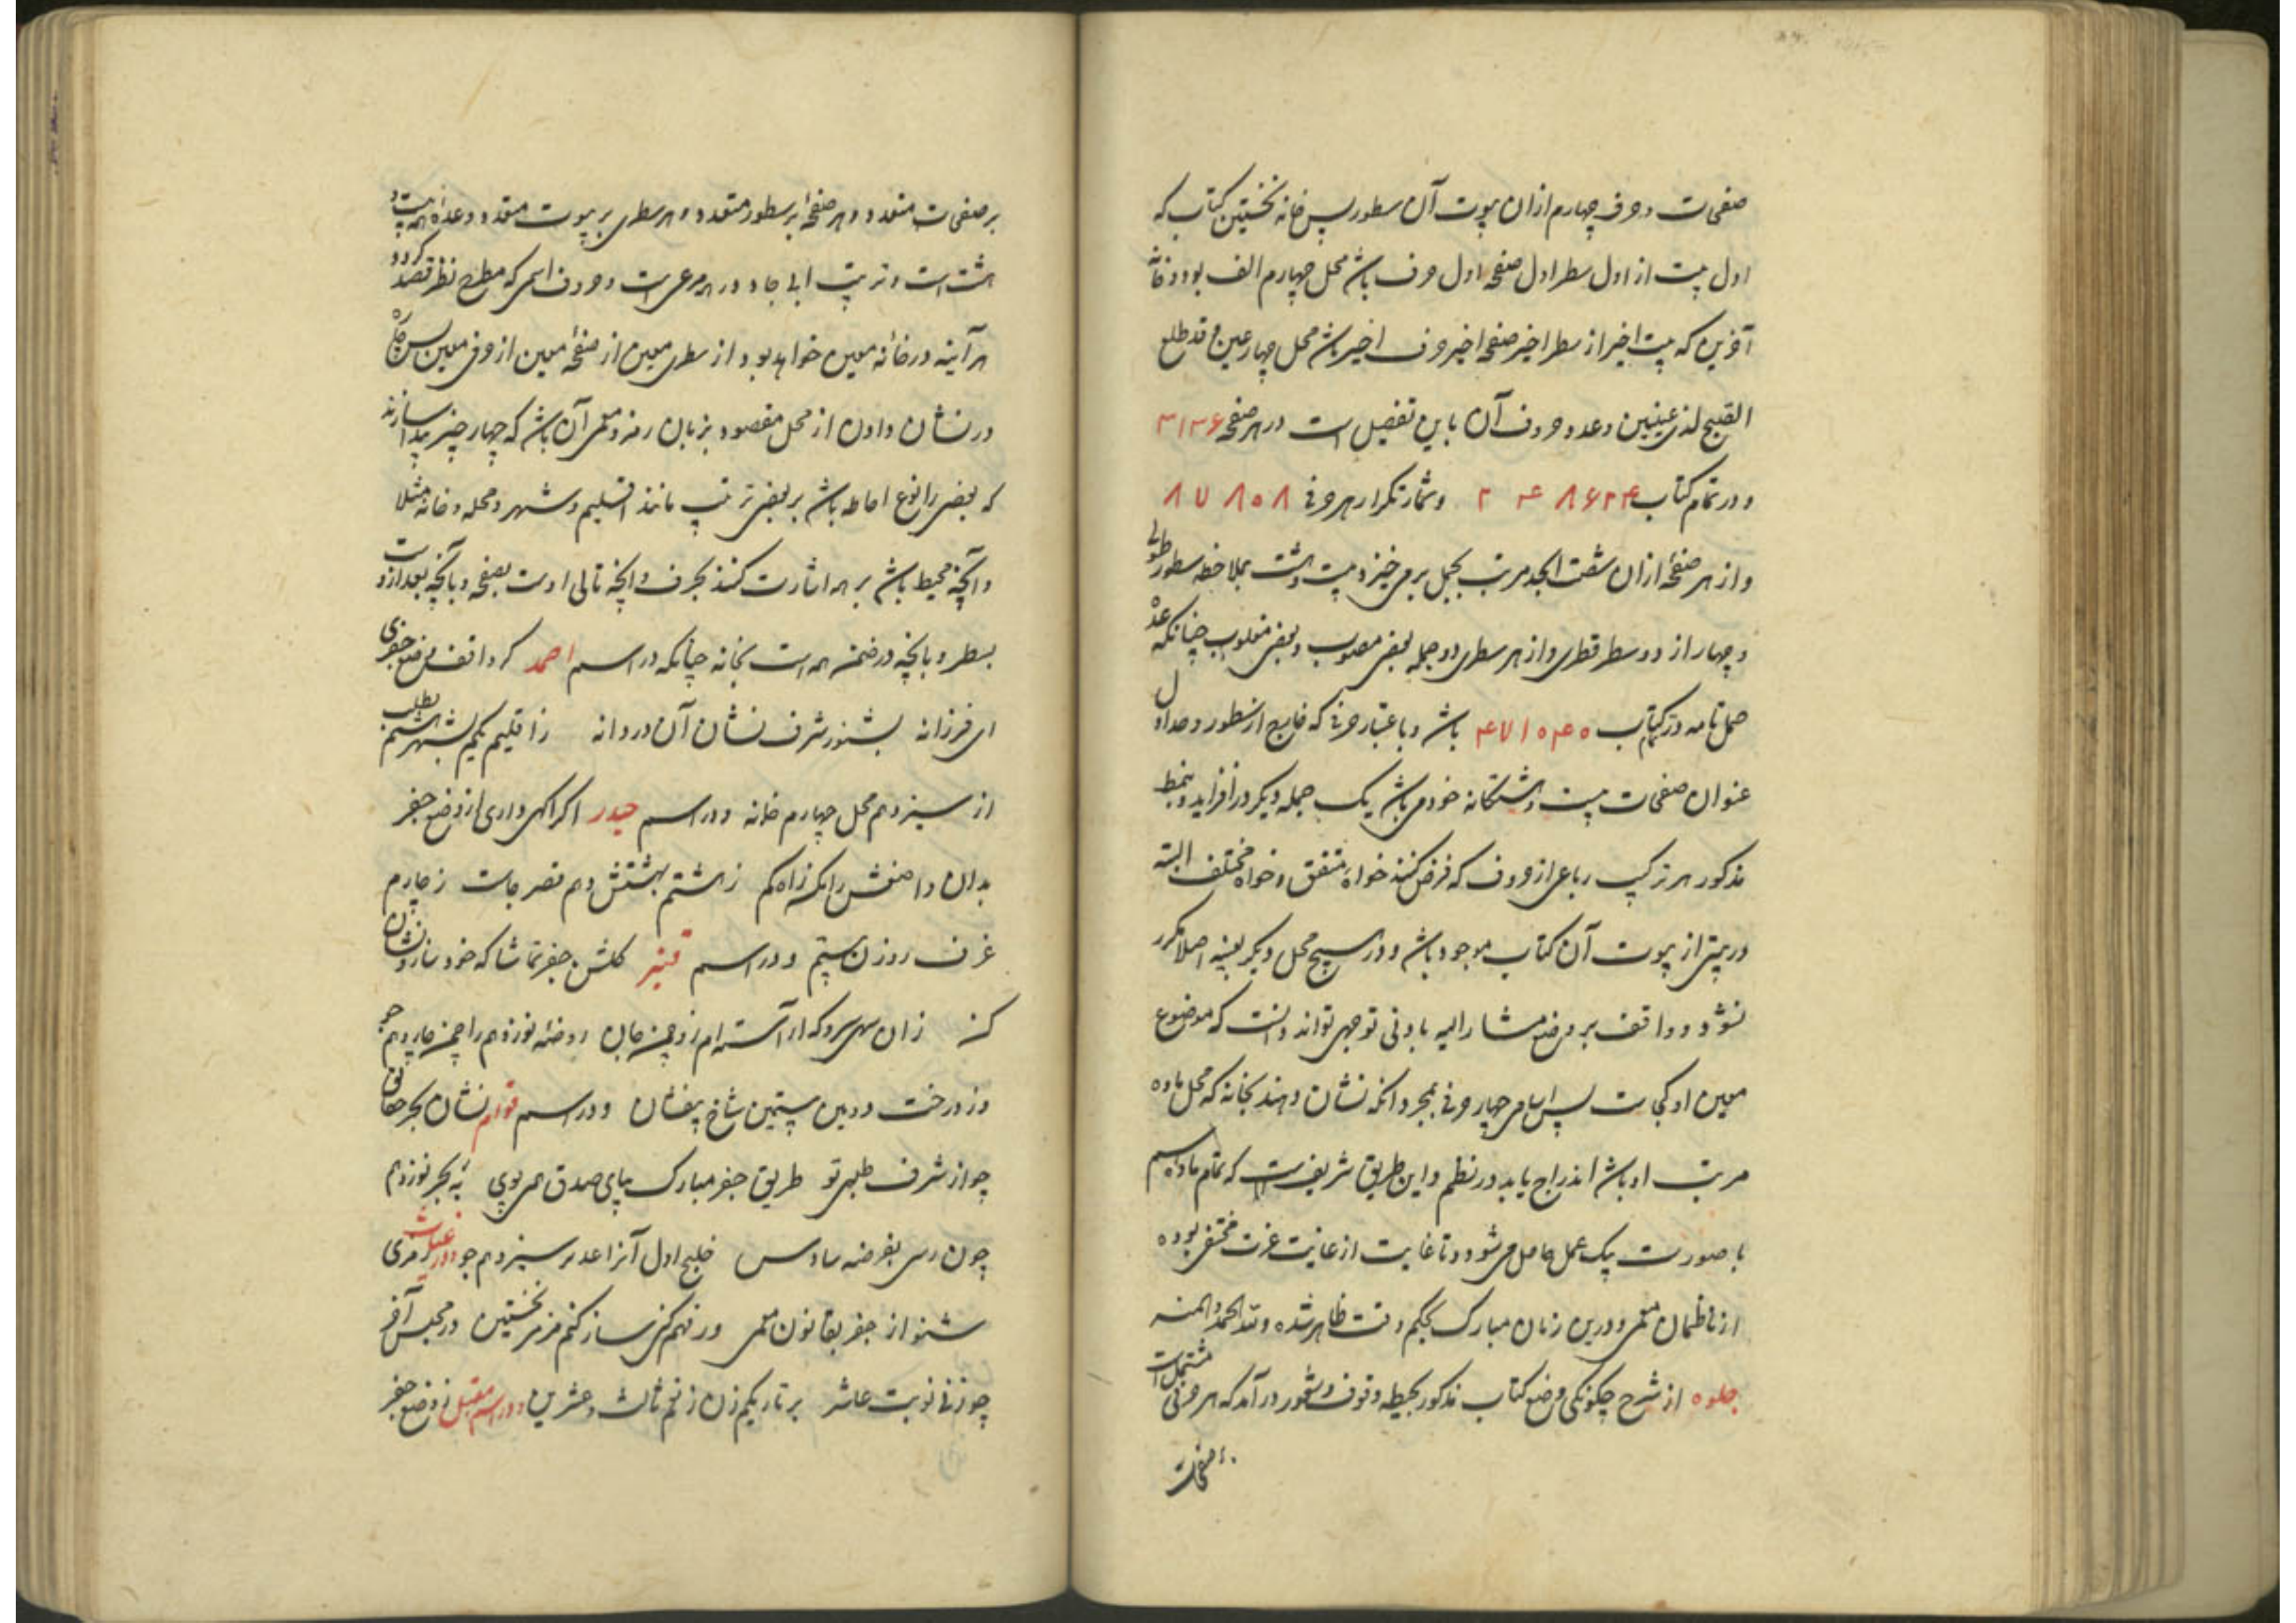 صفحات و حرف چهارم ازان بیوت آن سطور پس خانه نخستین کتاب که
اول بیت از اول سطر اول صفحه اول حرف باشد محل چهارم الف بود و خانه
آخرین که بیت اخیر از سطر اخیر صفحه اخیر حرف اخیر باشد محل چهار عین و قد طلع
الصبح لذی عینین و عدد حروف آن باین تفصیل است در هر صفحه ۳۱۳۶
و در تمام کتاب ۲۴۵۸۶۲۴ و شمار تکرار هر حرفی ۸۷۸۰۸
و از هر صفحه ازان شصت ابجد مرتب بجمل بر می‌خیزد بیست و هشت بملاحظه سطور طولی
و چهار از دو سطر قطری و از هر سطری دو جمله بعضی مصوب و بعضی مقلوب چنانکه عدد
جمل تامه در کتاب ۴۷۱۰۴۰ باشد و باعتبار حرفی که خارج از سطور و جداول
عنوان صفحات بیست و هشتگانه خود می‌باشد یک جمله دیگر در افزاید و بنمط
مذکور هر ترکیب رباعی از حروف که فرض کنند خواه متفق و خواه مختلف البته
در بیتی از بیوت آن کتاب موجود باشد و در هیچ محل دیگر بعینه اصلا مکرر
نشود و واقف بر وضع مشار الیه بادنی توجهی تواند دانست که موضوع
معین او کجاست پس اسامی چهار حرفی بمجرد آنکه نشان دهند بخانه که محل ماده
مرتب او باشد اندراج یابد در نظم و این طریق شریفست که تمام ماده اسم
با صورت بیک عمل حاصل می‌شود و تا غایت از غایت عزت مختفی بوده
از ناظمان معمی و درین زمان مبارک بحکم وقت ظاهر شده و لله الحمد و المنه
جلوه از شرح چگونگی وضع کتاب مذکور بحیطه وقوف و شعور درآمد که هر حرفی مشتمل است
صفحات
بر صفحات متعدد و هر صفحه بر سطور متعدد و هر سطری بر بیوت متعدد و عدد همه بیست و
هشت است و ترتیب ابجاد در همه مرعی است و حروف اسمی که مطمح نظر قصد گردد
هر آینه در خانه معین خواهد بود از سطری معین از صفحه معین از حرفی معین پس
در نشان دادن از محل مقصود بزبان رمز و معمی آن باشد که چهار چیز پیدا سازند
که بعضی را نوع احاطه باشد بر بعضی بترتیب مانند اقلیم و شهر و محله و خانه مثلا
و آنچه محیط باشد بر همه اشارت کنند بحرف و آنچه تالی اوست بصفحه و بآنچه بعد ازوست
بسطر و بآنچه در ضمن همه است بخانه چنانکه در اسم احمد گر واقفی بوضع جفری
ای فرزانه بشنو ز شرف نشان آن دردانه ز اقلیم یکم بشهر هشتم بطلب
از سیزدهم محل چهارم خانه و در اسم حیدر اگر آگهی داری از وضع جفر
بدان و اصفش را مگر زاه کم ز هشتم بهشتش دهم قصر جاست ز چارم
غرف روزن بیستم و در اسم قنبر گلشن جفر تماشا که خود ساز و نشان
کن زان سهی سرو که آراسته‌ام زو چمن جان روضه نوزدهم را چمن چاردهم جو
وز درخت دومین بیستمین شاخ بیفشان و در اسم قوام نشان بحر حقایق
چو از شرف طلبی تو طریق جفر مبارک بپای صدق همی پوی به بحر نوزدهم
چون رسی بفرضه سادس خلیج اول آنرا عدیر سیزدهم جو و در غیاث گر مری
شنو از جفر بقانون معمی ور فهم کنی ساز کنم مزمر نخستین در مجلس آخر
چو زنی نوبت عاشر بر تار یکم زن ز نغم ثالث و عشرین و در اسم مقبل ز وضع جفر